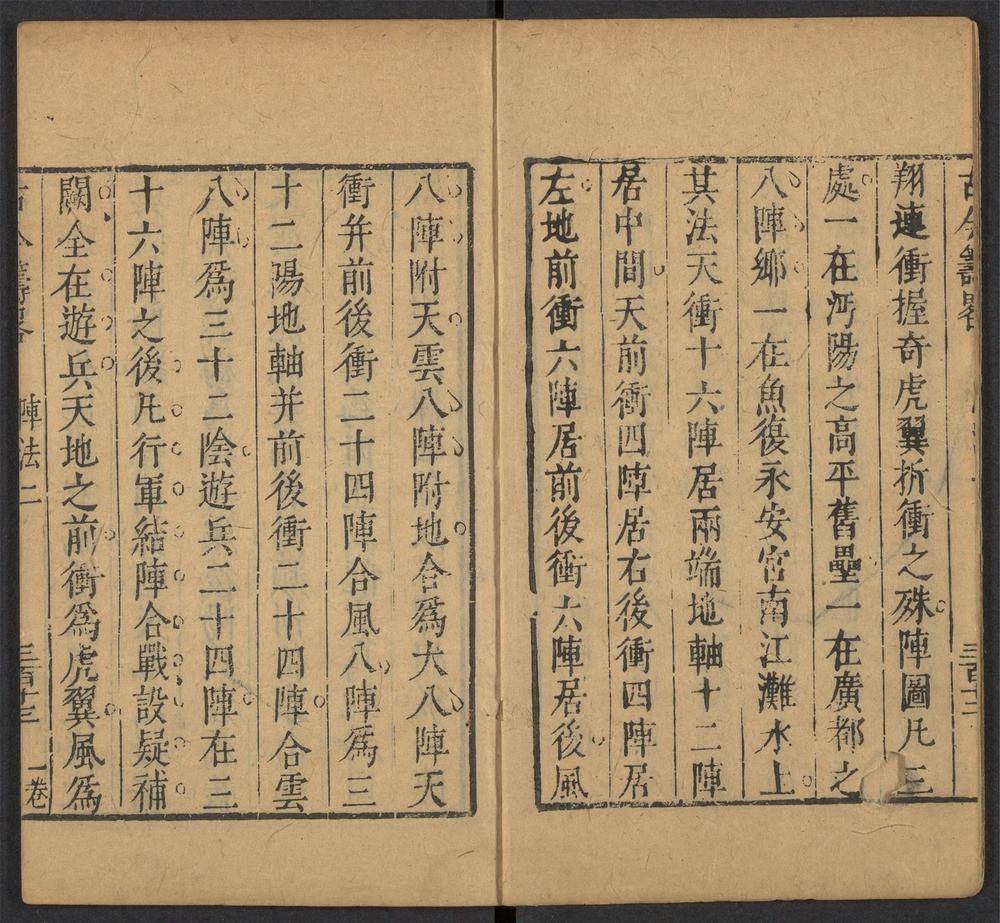 古今籌畧
三百十二
翔連衝握奇虎翼折衝之殊陣圖凡三
處一在沔陽之高平舊壘一在廣都之
八陣鄉一在魚復永安宮南江灘水上
其法天衝十六陣居兩端地軸十二陣
居中間天前衝四陣居右後衝四陣居
左地前衝六陣居前後衝六陣居後風
八陣附天雲八陣附地合爲大八陣天
衝并前後衝二十四陣合風八陣爲三
十二陽地軸并前後衝二十四陣合雲
八陣爲三十二陰遊兵二十四陣在三
十六陣之後凡行軍結陣合戰設疑補
闕全在遊兵天地之前衝爲虎翼風爲
陣法二
三百十三
一卷